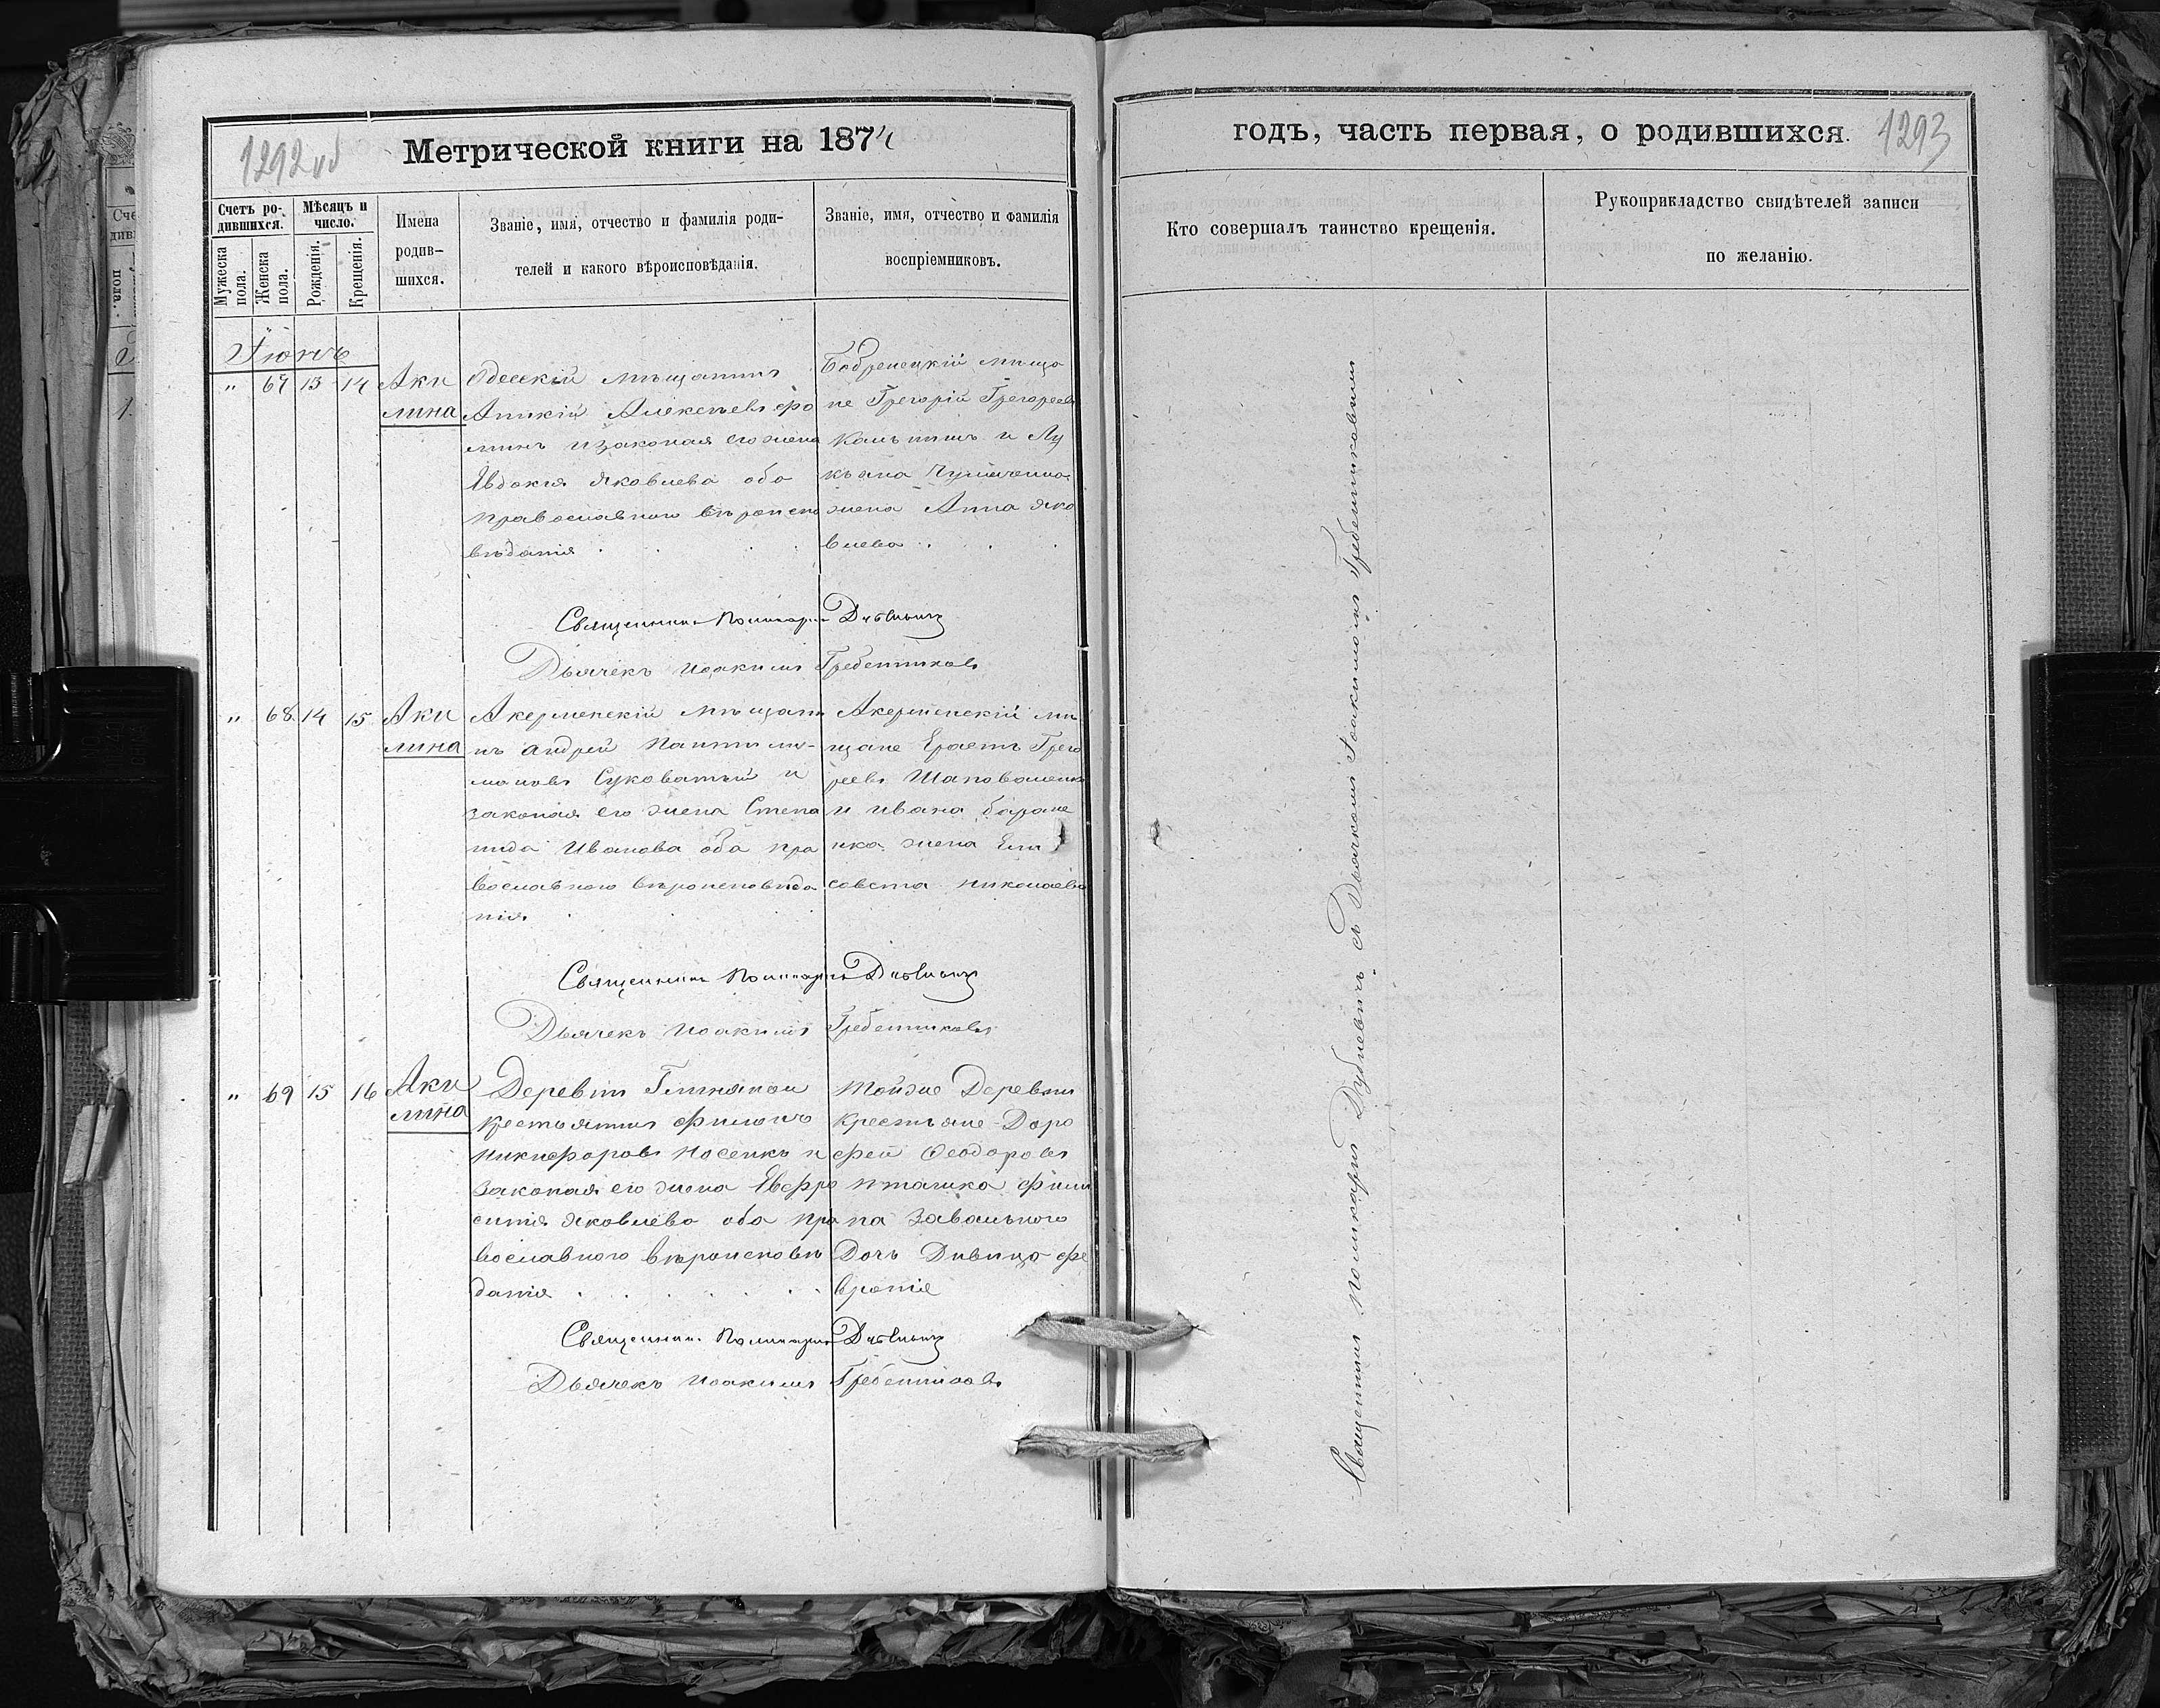 1292 об
Метрической книги на 1874
Счетъ ро-
дившихся.
Мѣсяцъ и
число.
Мужеска
пола.
Женска
пола.
Рожденія.
Крещенія.
Имена
родив-
шихся.
Званіе, имя, отчество и фамилія роди-
телей и какого вѣроисповѣданія.
Званіе, имя, отчество и фамилія
воспріемниковъ.
Іюнь
„ 67 13 14
Аки
лина
Одесскій мѣщанинъ
Алексѣевъ Фо
минъ и законая его жена
Явдокія Яковлева оба
православного вѣроиспо
вѣданія
мѣща
не Григорій Григореевъ
и Лу
кьяна
жена Анна Яко
влева
Священникъ Поликарпъ
Дьячекъ Иоакимъ Гребенниковъ
„ 68 14 15
Аки
лина
Акерменскій мѣщани
нъ Андрей Пантили-
моновъ Суковатый и
законая его жена Степа
нида Иванова оба пра
вославного вѣроисповѣда
нія
Акерменскій мѣ
щане Ерастъ Григо
реевъ Шаповаленко
и Ивана Баране
нка жена Ели
савета Николаева
Священникъ Поликарпъ
Дьячекъ Иоакимъ Гребенниковъ
„ 69 15 16
Аки
лина
Деревни Глиняной
крестьянинъ Филипъ
Никифоровъ Носенкъ и
законая его жена Евфро
синія Яковлева оба пра
вославного вѣроисповѣ
данія
Тойже Деревни
крестьяне Доро
фей Феодоровъ
Пташка Фили
па Завального
Дочь Дивица Фе
вронія
Священникъ Поликарпъ
Дьячекъ Иоакимъ Гребенниковъ
годъ, часть первая, о родившихся.
1293
Кто совершалъ таинство крещенія.
Рукоприкладство свидѣтелей записи
по желанію.
Священникъ Поликарпъ Дубневичъ съ Дьячкомъ Іоакимомъ Гребенниковымъ